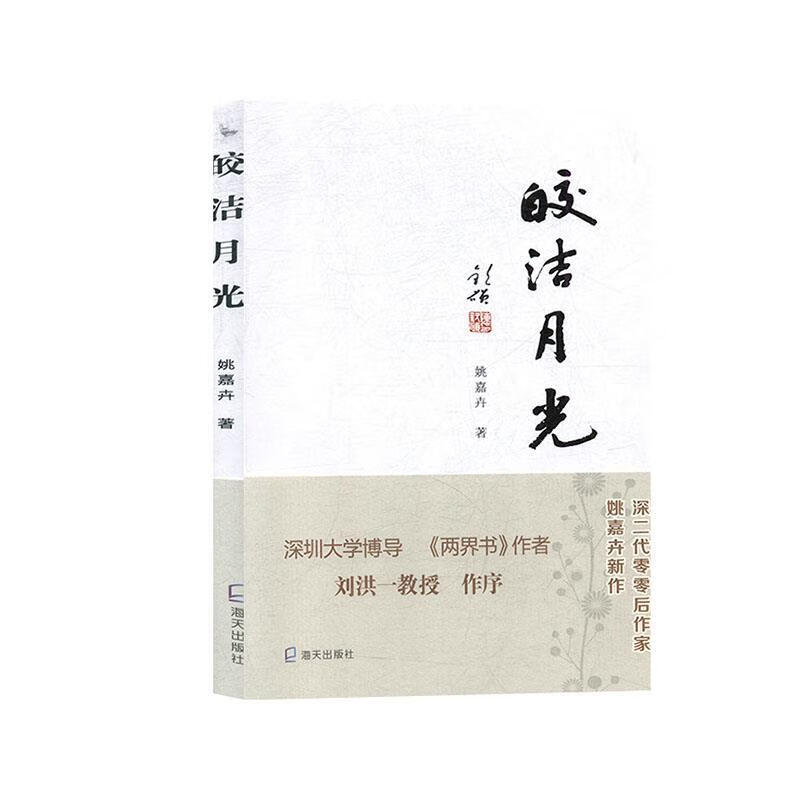 皎洁月光
姚嘉卉 著
海天出版社
皎洁月光
姚嘉卉 著
深圳大学博导 《两界书》作者
刘洪一教授 作序
深二代零零后作家
姚嘉卉新作
海天出版社